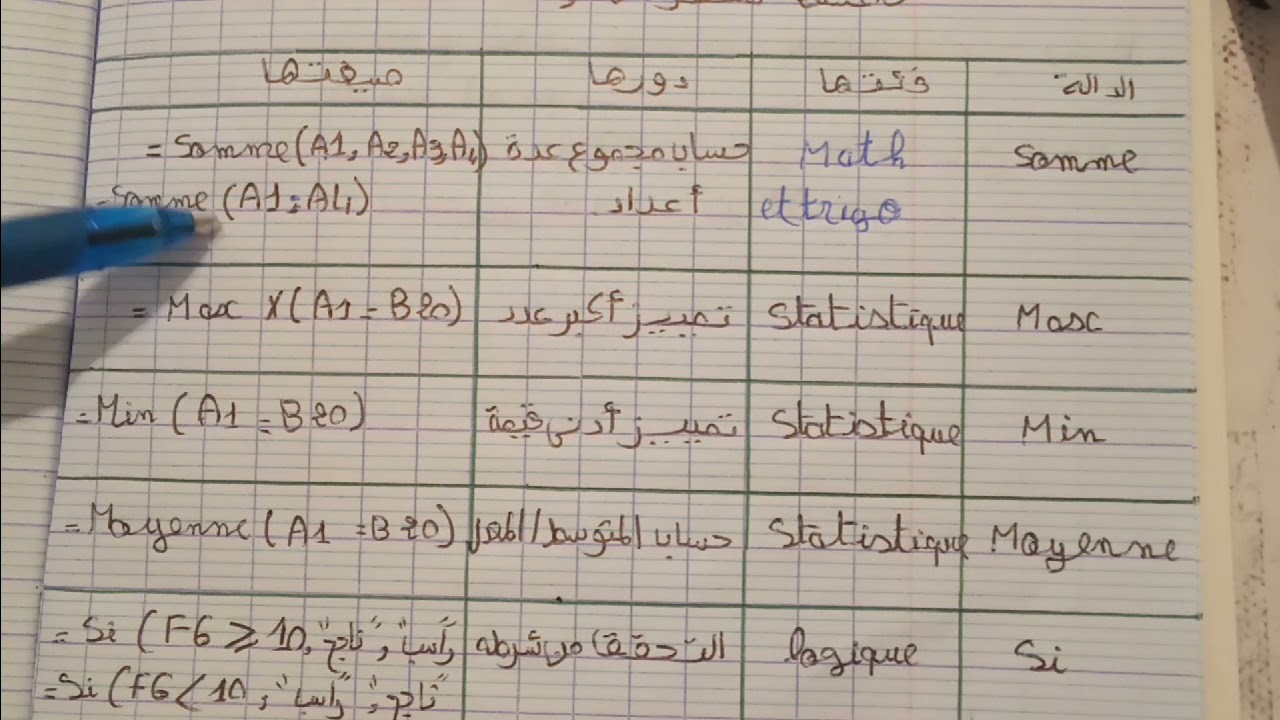 الدالة فئتها دورها صيغتها
Somme Math حساب مجموع عدة = Somme(A1, A2, A3, A4)
et trigo أعداد =Somme (A1:A4)
Max Statistique تمييز أكبر عدد = Max (A1=B20)
Min Statistique تمييز أدنى قيمة =Min (A1=B20)
Moyenne Statistique حساب المتوسط/المعدل =Moyenne (A1=B20)
Si logique التحقق من شرط =Si (F6⩾10,"ناجح","راسب"
=Si (F6<10;"راسب";"ناجح"